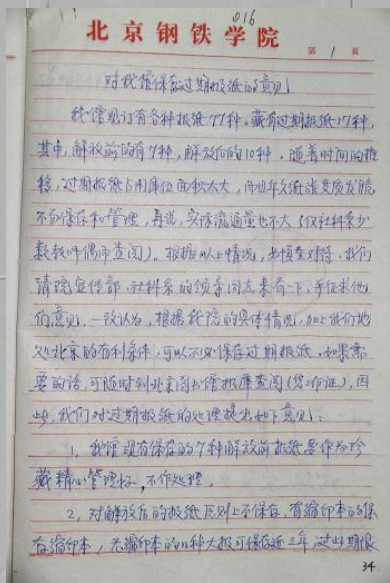 016
北京钢铁学院
第 1 页
对我馆保存过期报纸的意见
我馆现订有各种报纸77种。藏有过期报纸17种,
其中,解放前的有7种,解放后的10种。随着时间的推
移,过期报纸占用库位面积太大,而且年久纸张变质发脆
不易保存和管理,再说,实际流通量也不大(仅社科系少
数教师偶而查阅)。根据以上情况,为慎重对待,我们
请院宣传部、社科系的领导同志来看一下,并征求他
们意见,一致认为,根据我院的具体情况,加上我们地
处北京的有利条件,可以不必保存过期报纸。如果需
要的话,可随时到北京图书馆报库查阅(凭证),因
此,我们对过期报纸的处理提出如下意见:
1、我馆现有保存的7种解放前报纸要作为珍
藏精心管理好,不作处理。
2、对解放后的报纸原则上不保存,有缩印本的保
存缩印本,无缩印本的大报可保存近三年,过此期限
34